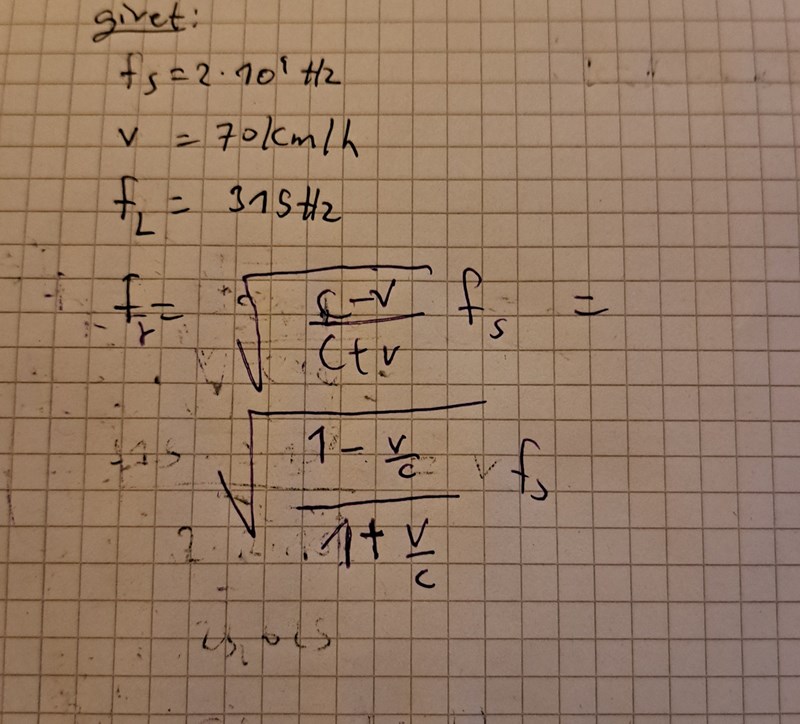 givet:
f_s = 2·10^9 Hz
v = 70 km/h
f_L = 315 Hz
f_r = √((c-v)/(c+v)) f_s =
√((1 - v/c)/(1 + v/c)) f_s